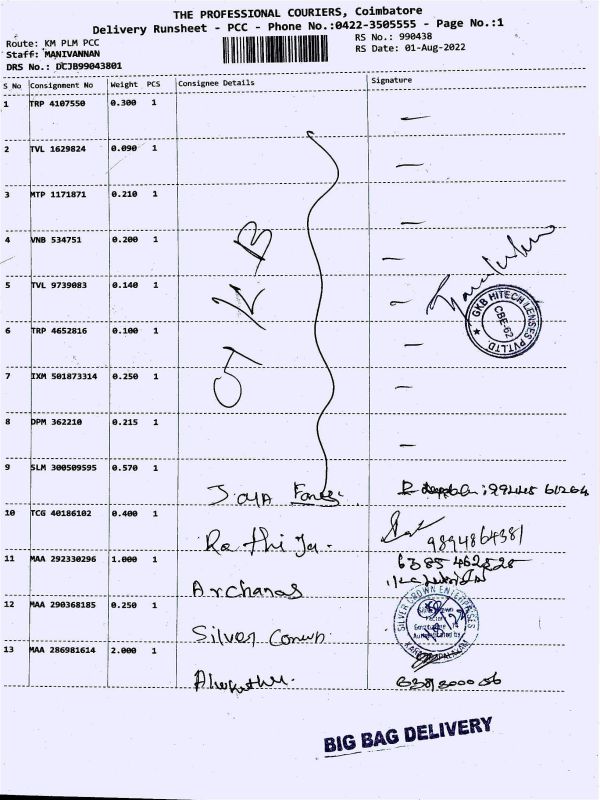 THE PROFESSIONAL COURIERS, Coimbatore
Delivery Runsheet - PCC - Phone No.:0422-3505555 - Page No.:1
Route: KM PLM PCC
RS No.: 990438
Staff: MANIVANNAN
RS Date: 01-Aug-2022
DRS No.: DCJB99043801
S No Consignment No Weight PCS Consignee Details Signature
1 TRP 4107550 0.300 1
2 TVL 1629824 0.090 1
3 MTP 1171871 0.210 1
4 VNB 534751 0.200 1
5 TVL 9739083 0.140 1
6 TRP 4652816 0.100 1
7 IXM 501873314 0.250 1
8 DPM 362210 0.215 1
GKB
GKB HITECH LENSES PVT.LTD.
CBE-62
9 SLM 300509595 0.570 1
Jaya
10 TCG 40186102 0.400 1
Rathi Ja. 9894864381
11 MAA 292330296 1.000 1
Archanas
12 MAA 290368185 0.250 1
Silver
SILVER CROWN ENTERPRISES
13 MAA 286981614 2.000 1
BIG BAG DELIVERY